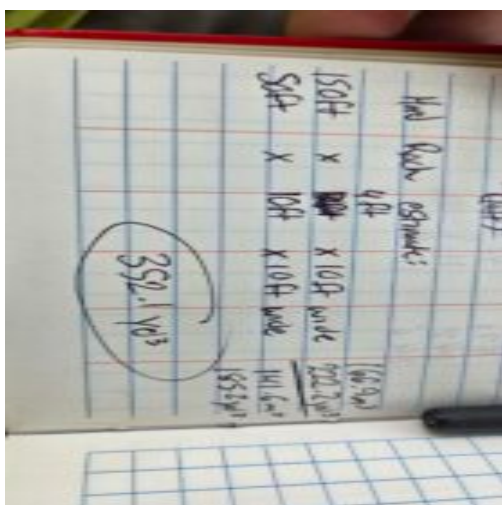 Rock estimate:
4ft 166.9
150ft x x 10ft wide 222.2 yd³
50ft x 10ft x 10ft wide 141.6 m³
185.2 yd³
352.1 yd³